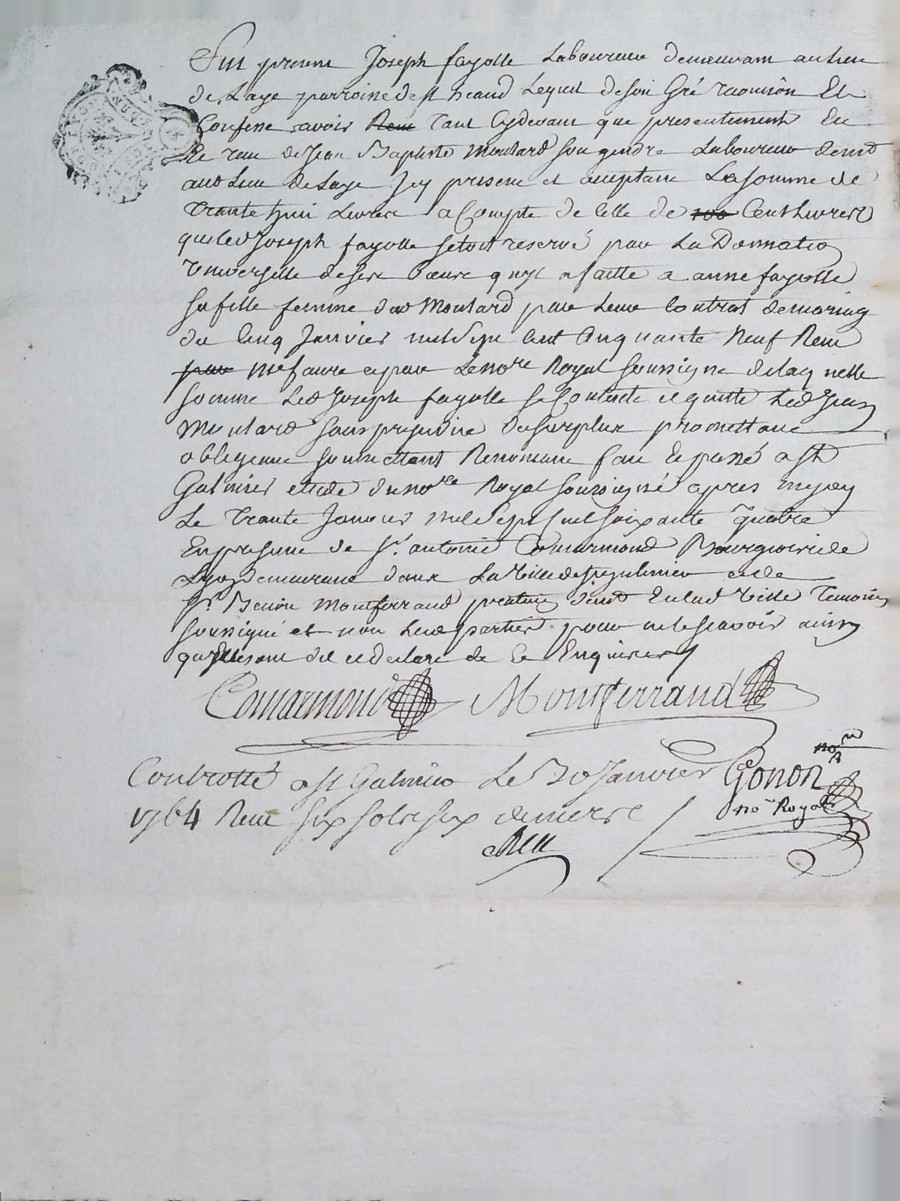 Fut présent Joseph fayolle Laboureur demeurant au lieu
de Laye parroisse de st heand Lequel de son Gré a reconnu Et
Confessé avoir Receu tant Cydevant que presentement Eu
Et receu de Jean Baptiste Moulard son gendre Laboureur demt
aud Lieu de Laye Jcy present et acceptant La somme de
trante huit Livres a Compte de Celle de 100 Cent Livres
que led Joseph fayolle setoit reservé par La Donnation
Universelle de ses biens quil a faitte a anne fayolle
sa fille femme dud Moulard par Leur Contrat de mariage
du Cinq Janvier mil sept Cent Cinquante Neuf Receu
par Me faure et par Le nore Royal soussigné de laquelle
somme Led Joseph fayolle se Contente et quitte Led Jean
Moulard sans prejudice du surplus promettant
obligeant soumettant Renonceant fait Et passé a St
Galmier etude du nore Royal soussigné apres midy
Le trante Janvier mil sept Cent soixante quatre
En presence de sr. antoine Comarmond Bourgeois de
Lyon demeurant dans La ville de st galmier et de
sr Benoit Montferrand praticien demt En lad ville temoins
soussigné et non Lesd partiés pour ne le scavoir ainsy
quelles ont dit et declaré de Ce Enquises
Comarmond Montferrand
Controllé a st Galmier Le 30 Janvier
1764 Receu six sols six deniers
Gonon
nore Royal